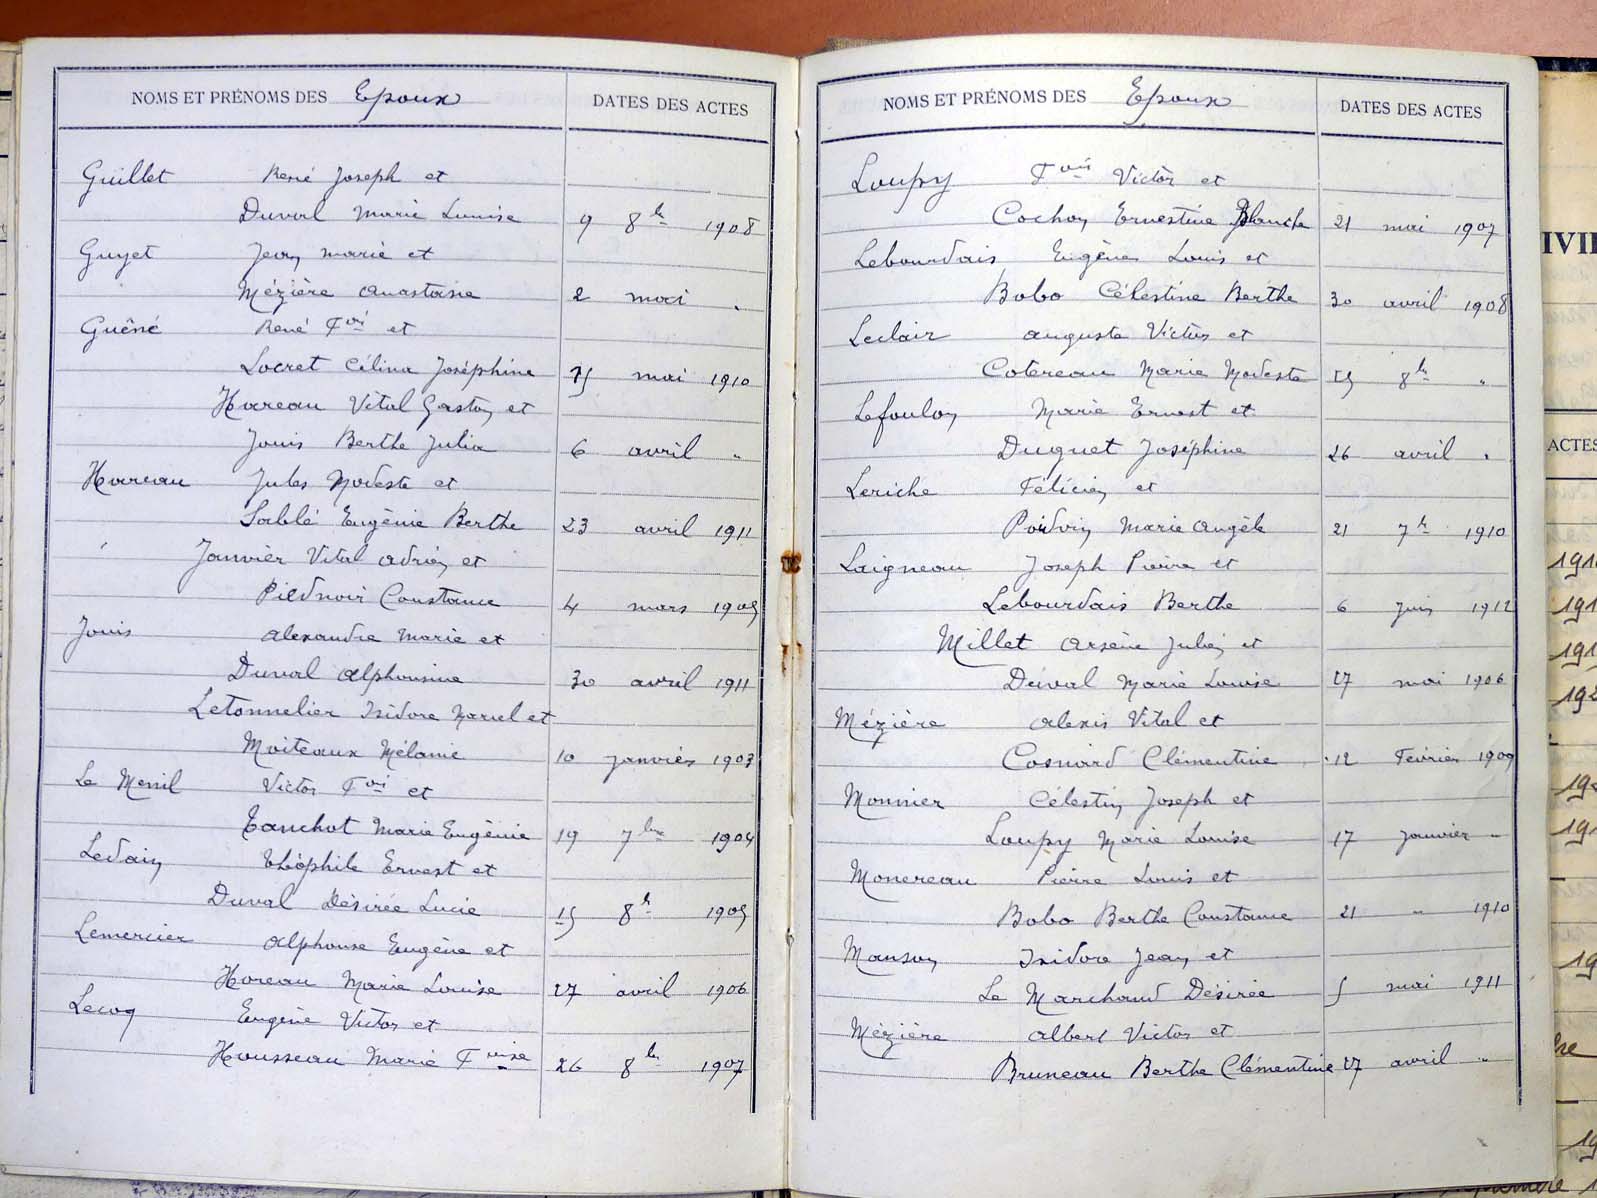 NOMS ET PRÉNOMS DES Epoux DATES DES ACTES
Guillet René Joseph et
Duval Marie Louise 9 8bre 1908
Guyet Jean Marie et
Mézière Anastasie 2 mai "
Guêné René Fois et
Locret Célina Joséphine 15 mai 1910
Hareau Vital Gaston et
Jouis Berthe Julia 6 avril "
Hareau Jules Modeste et
Sablé Eugènie Berthe 23 avril 1911
Janvier Vital Adrien et
Piednoir Constance 4 mars 1905
Jouis Alexandre Marie et
Duval Alphonsine 30 avril 1911
Letonnelier Isidore Marcel et
Moiteaux Mélanie 10 janvier 1903
Le Menil Victor Fois et
Tanchot Marie Eugènie 19 7bre 1904
Ledain Théophile Ernest et
Duval Désirée Lucie 15 8bre 1905
Lemercier Alphonse Eugène et
Horeau Marie Louise 27 avril 1906
Lecoq Eugène Victor et
Housseau Marie Foise 26 8bre 1907
NOMS ET PRÉNOMS DES Epoux DATES DES ACTES
Loupy Fois Victor et
Cochon Ernestine Blanche 21 mai 1907
Lebourdais Eugène Louis et
Bobo Célestine Berthe 30 avril 1908
Leclair Auguste Victor et
Cotereau Marie Modeste 15 8bre "
Lefoulon Marie Ernest et
Duguet Joséphine 26 avril "
Leriche Félicien et
Poidvin Marie Angèle 21 7bre 1910
Laigneau Joseph Pierre et
Lebourdais Berthe 6 Juin 1912
Millet Arsène Julien et
Duval Marie Louise 27 mai 1906
Mézière Alexis Vital et
Cosnard Clémentine 12 Février 1909
Monnier Célestin Joseph et
Loupy Marie Louise 17 Janvier "
Monereau Pierre Louis et
Bobo Berthe Constance 21 " 1910
Manson Isidore Jean et
Le Marchand Désirée 5 mai 1911
Mézière Albert Victor et
Bruneau Berthe Clémentine 27 avril "
ACTES